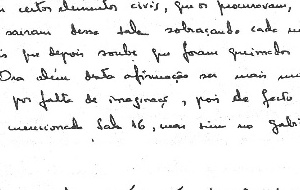 certos elementos civis, que os procuravam,
sairam dessa sala sobraçando cada
que depois soube que foram queimados
Ora além desta afirmação ser mais
por falta de imaginaç, pois de facto
mencionada Sala 16, mas sim no gabi